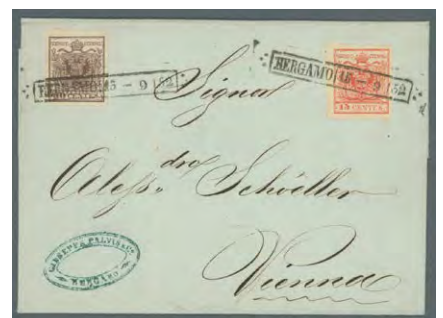 BERGAMO 15 - 9 52
BERGAMO 15 - 9 52
15 CENTES
Signor
Aless.dro Schöeller
Vienna
GIUSEPPE
BERGAMO